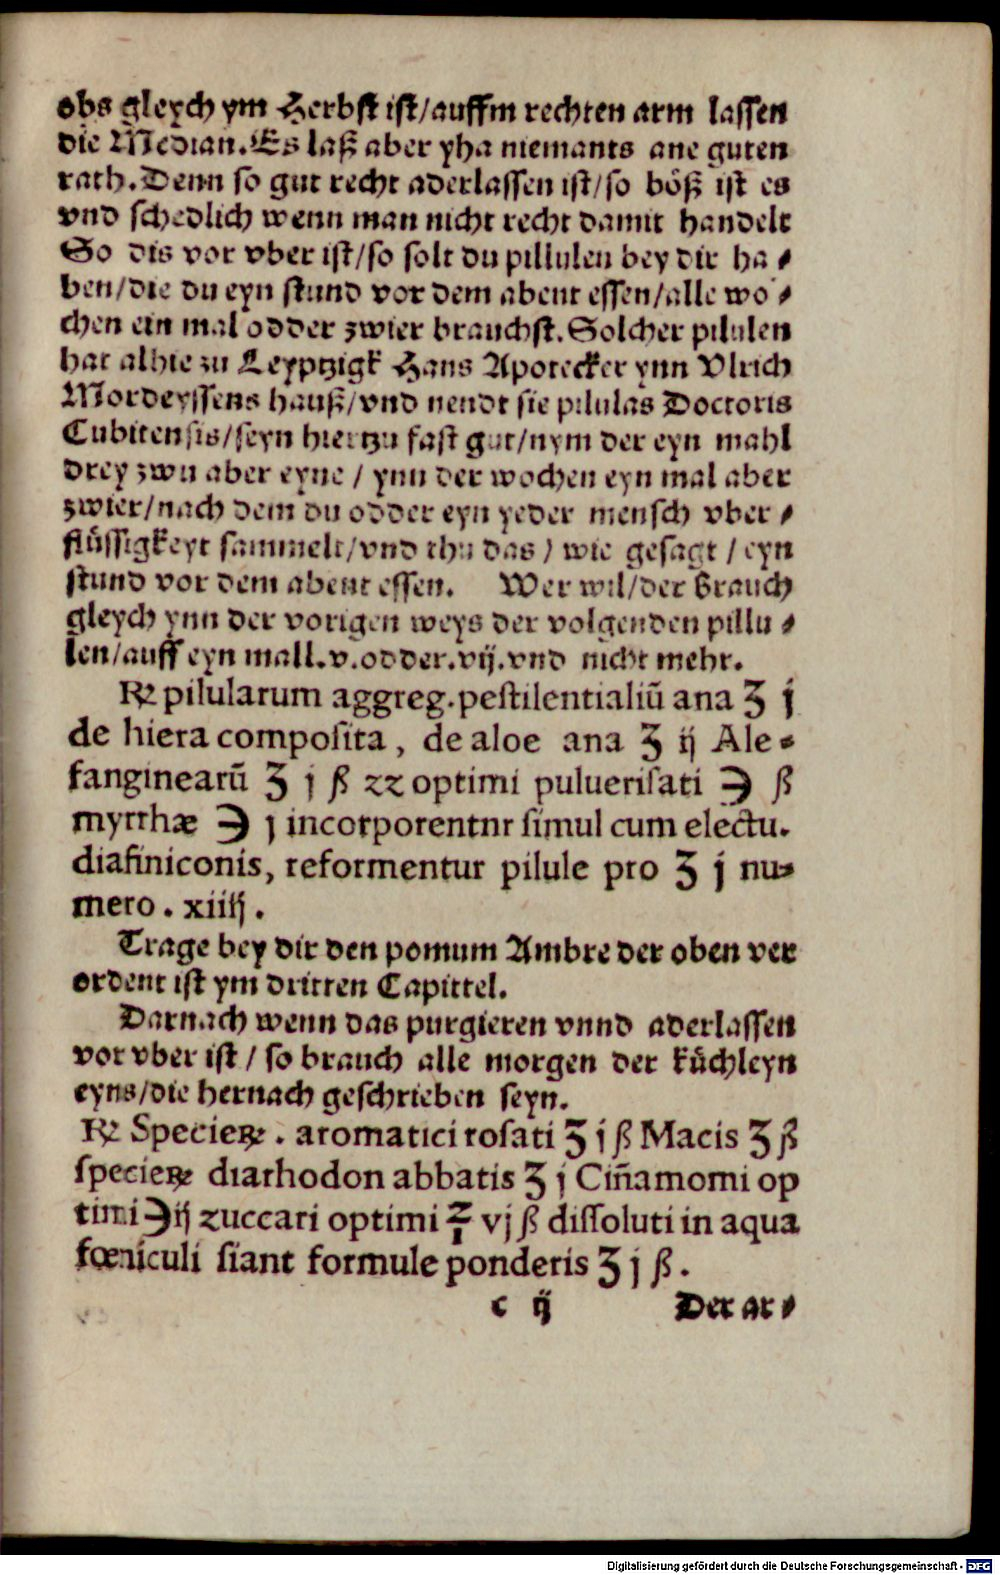 obs gleych ym Herbst ist/auffm rechten arm lassen
die Median.Es laß aber yha niemants ane guten
rath.Denn so gut recht aderlassen ist/so böß ist es
vnd schedlich wenn man nicht recht damit handelt
So dis vor vber ist/so solt du pillulen bey dir ha⸗
ben/die du eyn stund vor dem abent essen/alle wo⸗
chen ein mal odder zwier brauchst.Solcher pilulen
hat alhie zu Leyptzigk Hans Apotecker ynn Vlrich
Mordeyssens hauß/vnd nendt sie pilulas Doctoris
Cubitensis/seyn hiertzu fast gut/nym der eyn mahl
drey zwu aber eyne / ynn der wochen eyn mal aber
zwier/nach dem du odder eyn yeder mensch vber⸗
flüssigkeyt sammelt/vnd thu das / wie gesagt / eyn
stund vor dem abent essen. Wer wil/der brauch
gleych ynn der vorigen weys der volgenden pillu⸗
len/auff eyn mall.v.odder.vij.vnd nicht mehr.
℞ pilularum aggreg.pestilentialiũ ana ʒ j
de hiera composita, de aloe ana ʒ ij Ale⸗
fanginearũ ʒ j ß zz optimi puluerisati ℈ ß
myrrhæ ℈ j incorporentnr simul cum electu.
diafiniconis, reformentur pilule pro ʒ j nu⸗
mero . xiiij .
Trage bey dir den pomum Ambre der oben ver
ordent ist ym dritten Capittel.
Darnach wenn das purgieren vnnd aderlassen
vor vber ist / so brauch alle morgen der küchleyn
eyns/die hernach geschrieben seyn.
℞ Specieꝝ . aromatici rosati ʒ j ß Macis ʒ ß
specieꝝ diarhodon abbatis ʒ j Cin̄amomi op
timi ℈ij zuccari optimi ℥ vj ß dissoluti in aqua
fœniculi fiant formule ponderis ʒ j ß .
c ij Der ar⸗
Digitalisierung gefördert durch die Deutsche Forschungsgemeinschaft - DFG